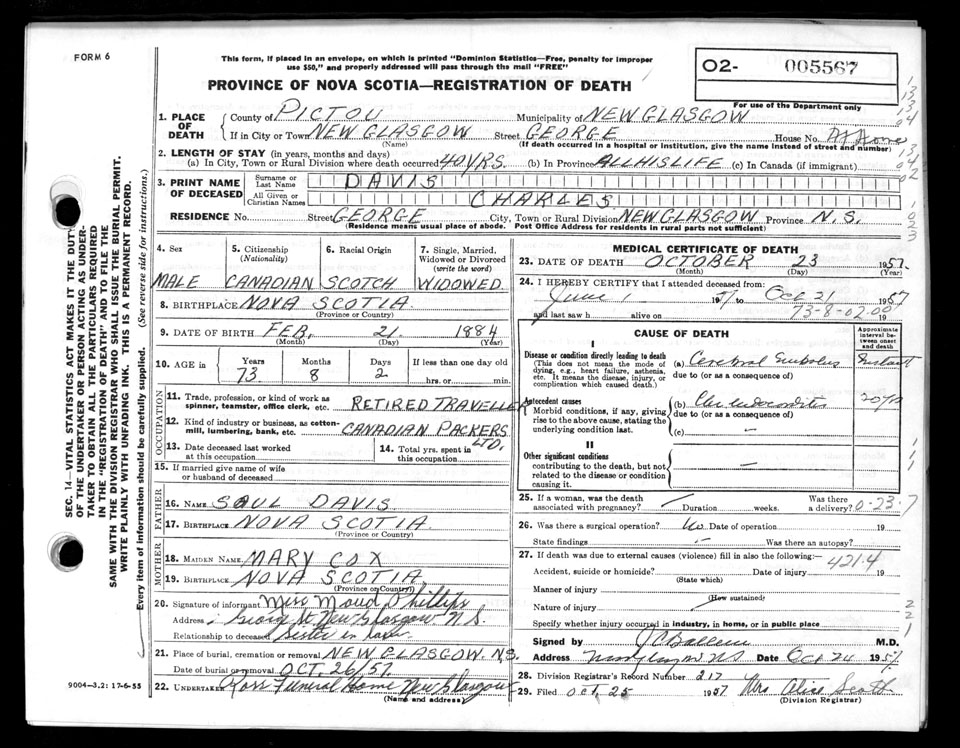 FORM 6
This form, if placed in an envelope, on which is printed "Dominion Statistics—Free, penalty for improper
use $50," and properly addressed will pass through the mail "FREE"
O2- 005567
For use of the Department only
PROVINCE OF NOVA SCOTIA—REGISTRATION OF DEATH
1. PLACE OF DEATH
County of PICTOU Municipality of NEW GLASGOW
If in City or Town NEW GLASGOW Street GEORGE House No.
(Name) (If death occurred in a hospital or institution, give the name instead of street and number)
2. LENGTH OF STAY (in years, months and days)
(a) In City, Town or Rural Division where death occurred 40 YRS. (b) In Province ALL HIS LIFE (c) In Canada (if immigrant)
3. PRINT NAME OF DECEASED
Surname or Last Name DAVIS
All Given or Christian Names CHARLES
RESIDENCE No. Street GEORGE City, Town or Rural Division NEW GLASGOW Province N.S.
(Residence means usual place of abode. Post Office Address for residents in rural parts not sufficient)
4. Sex
MALE
5. Citizenship (Nationality)
CANADIAN
6. Racial Origin
SCOTCH
7. Single, Married, Widowed or Divorced (write the word)
WIDOWED
8. BIRTHPLACE NOVA SCOTIA
(Province or Country)
9. DATE OF BIRTH FEB. 21 1884
(Month) (Day) (Year)
10. AGE in Years Months Days If less than one day old
73 8 2 hrs. or min.
OCCUPATION
11. Trade, profession, or kind of work as
spinner, teamster, office clerk, etc. RETIRED TRAVELLER
12. Kind of industry or business, as cotten-
mill, lumbering, bank, etc. CANADIAN PACKERS LTD.
13. Date deceased last worked
at this occupation
14. Total yrs. spent in
this occupation
15. If married give name of wife
or husband of deceased
FATHER
16. NAME SAUL DAVIS
17. BIRTHPLACE NOVA SCOTIA
(Province or Country)
MOTHER
18. MAIDEN NAME MARY COX
19. BIRTHPLACE NOVA SCOTIA
(Province or Country)
20. Signature of informant Miss Maud Phillips
Address George St. New Glasgow N.S.
Relationship to deceased Sister in law
21. Place of burial, cremation or removal NEW GLASGOW. N.S.
Date of burial or removal OCT. 26/57.
22. UNDERTAKER Ross Funeral Home New Glasgow
(Name and address)
MEDICAL CERTIFICATE OF DEATH
23. DATE OF DEATH OCTOBER 23 1957.
(Month) (Day)
24. I HEREBY CERTIFY that I attended deceased from:
June 1 1957 to Oct 21 1957
and last saw h alive on 73-8-02.00 19
CAUSE OF DEATH
Approximate interval between onset and death
I
Disease or condition directly leading to death
(This does not mean the mode of
dying, e.g., heart failure, asthenia,
etc. It means the disease, injury, or
complication which caused death.)
(a) Cerebral Embolus Instant
due to (or as a consequence of)
Antecedent causes
Morbid conditions, if any, giving
rise to the above cause, stating the
underlying condition last.
(b) Chr. Endocarditis 20 yrs
due to (or as a consequence of)
(c) —
II
Other significant conditions
contributing to the death, but not
related to the disease or condition
causing it.
—
25. If a woman, was the death
associated with pregnancy? Duration weeks. Was there a delivery? 0-23-7
26. Was there a surgical operation? No Date of operation 19
State findings — Was there an autopsy?
27. If death was due to external causes (violence) fill in also the following:— 421.4
Accident, suicide or homicide? Date of injury 19
(State which)
Manner of injury
(How sustained)
Nature of injury
Specify whether injury occurred in industry, in home, or in public place
Signed by M.D.
Address New Glasgow NS Date Oct 24 1957
28. Division Registrar's Record Number 217
29. Filed Oct. 25 1957 Mrs Alice Scott
(Division Registrar)
SEC. 14—VITAL STATISTICS ACT MAKES IT THE DUTY
OF THE UNDERTAKER OR PERSON ACTING AS UNDER-
TAKER TO OBTAIN ALL THE PARTICULARS REQUIRED
IN THE "REGISTRATION OF DEATH" AND TO FILE THE
SAME WITH THE DIVISION REGISTRAR WHO SHALL ISSUE THE BURIAL PERMIT.
WRITE PLAINLY WITH UNFADING INK. THIS IS A PERMANENT RECORD.
Every item of information should be carefully supplied. (See reverse side for instructions.)
9004—3.2: 17-6-55